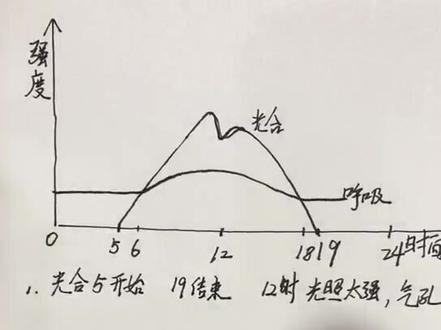 强度
光合
呼吸
0 5 6 12 18 19 24 时间
1. 光合5开始 19结束 12时 光照太强,气孔